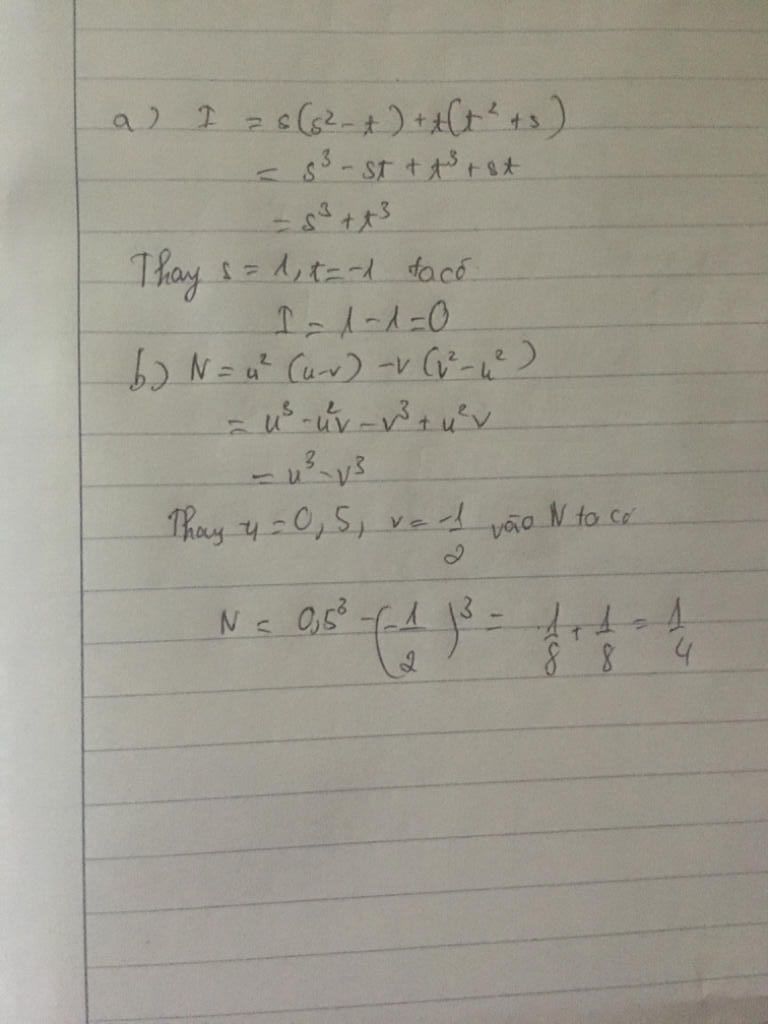 a) I = s(s² - t) + t(t² + s)
= s³ - st + t³ + st
= s³ + t³
Thay s = 1, t = -1 ta có
I = 1 - 1 = 0
b) N = u² (u-v) - v (v² - u²)
= u³ - u²v - v³ + u²v
= u³ - v³
Thay u = 0,5, v = -1/2 vào N ta có
N = 0,5³ - (-1/2)³ = 1/8 + 1/8 = 1/4